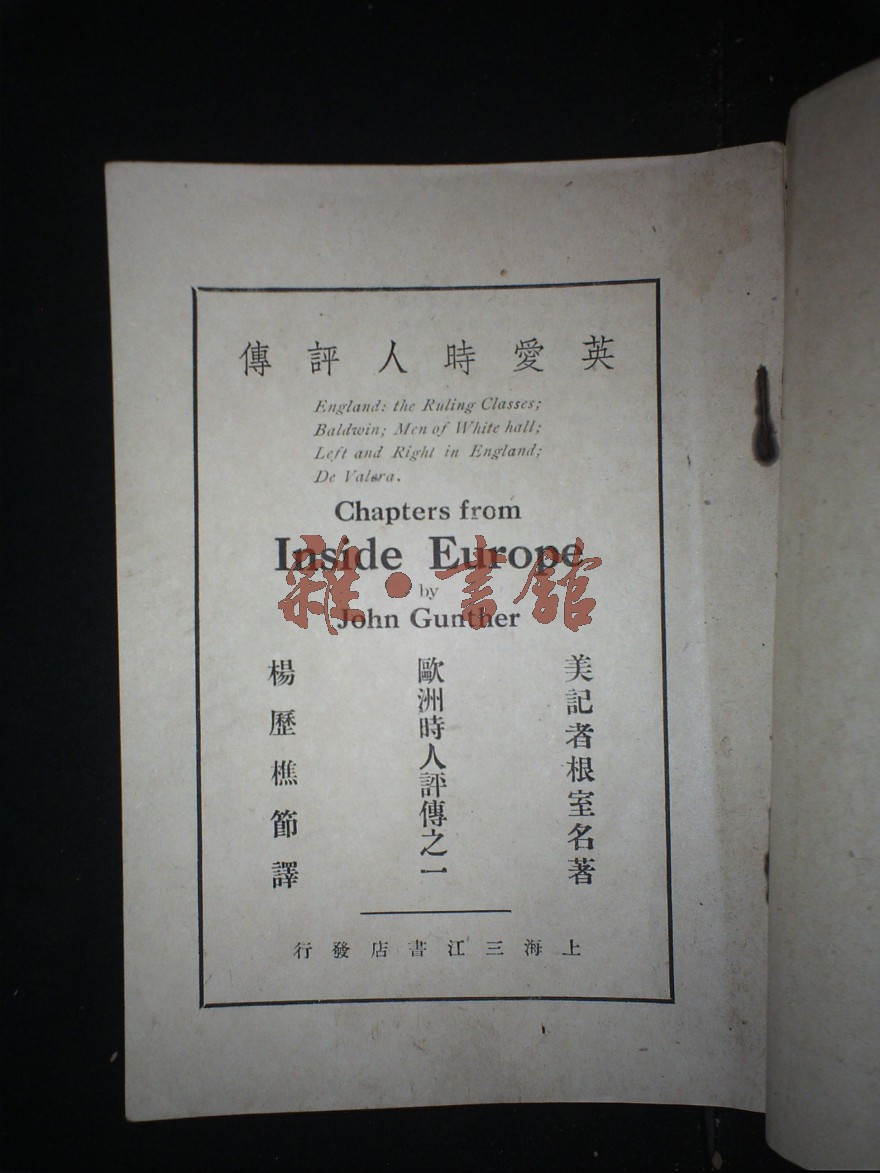 英愛時人評傳
England: the Ruling Classes;
Baldwin; Men of White hall;
Left and Right in England;
De Valera.
Chapters from
Inside Europe
by
John Gunther
雜·書館
美記者根室名著
歐洲時人評傳之一
楊歷樵節譯
上海三江書店發行